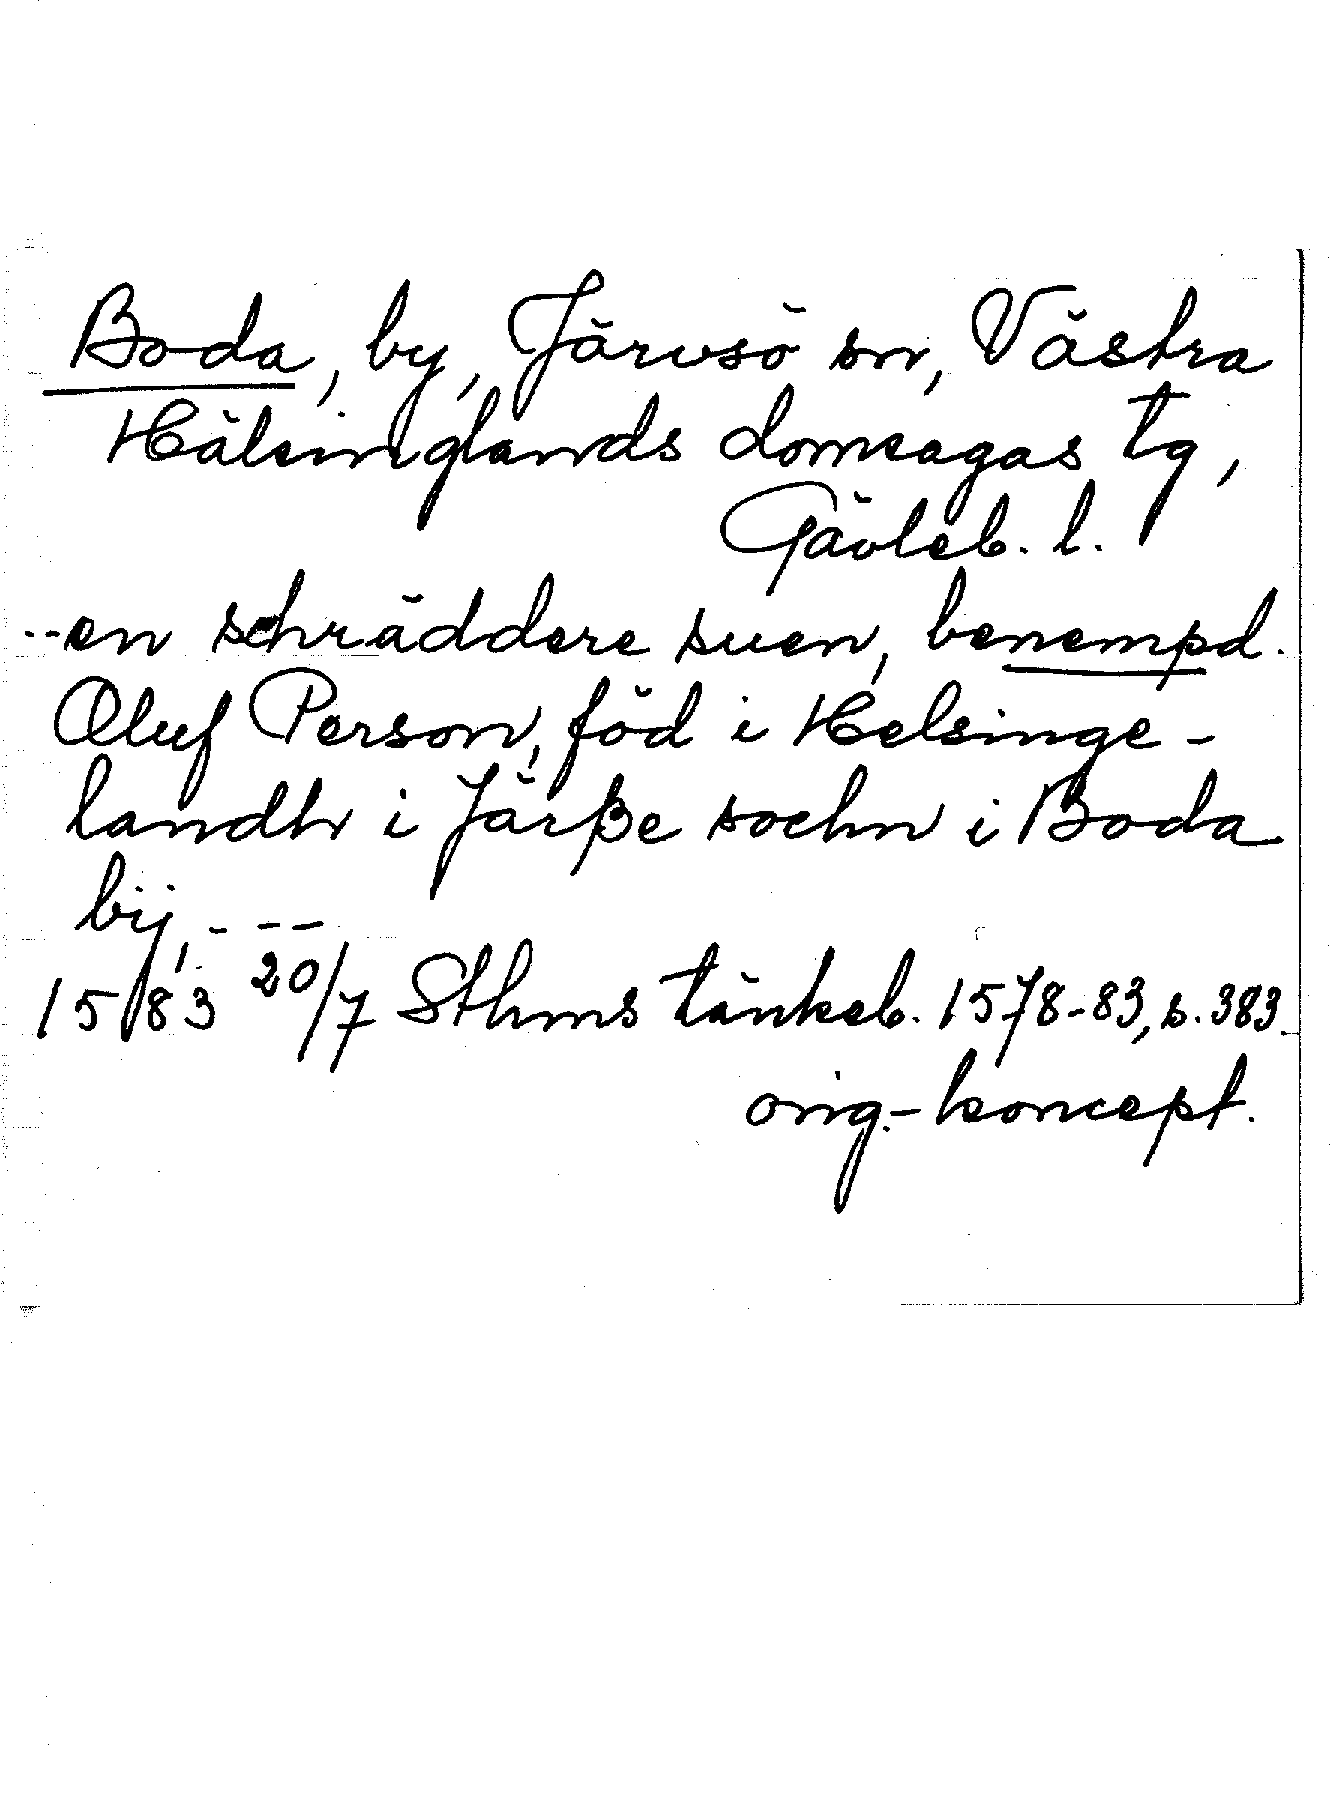 Boda, by, Järvsö sn, Västra
Hälsinglands domsagas tg,
Gävleb. l.
--en schräddere suen, benempd.
Oluf Person, föd i Helsinge-
landh i Järße sochn i Boda
bij, - - -
1583 20/7 Sthms tänkeb. 1578-83, s. 383.
orig.-koncept.